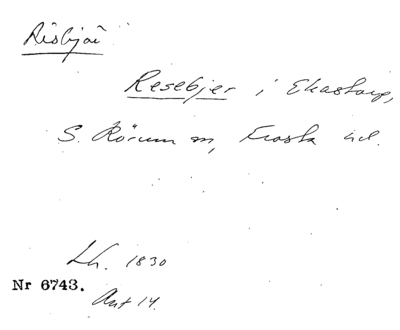 Risbjär
Resebjer i Ekastorp,
S. Rörum sn, Frosta hd.
Lh. 1830
Nr 6743.
Ant 14.